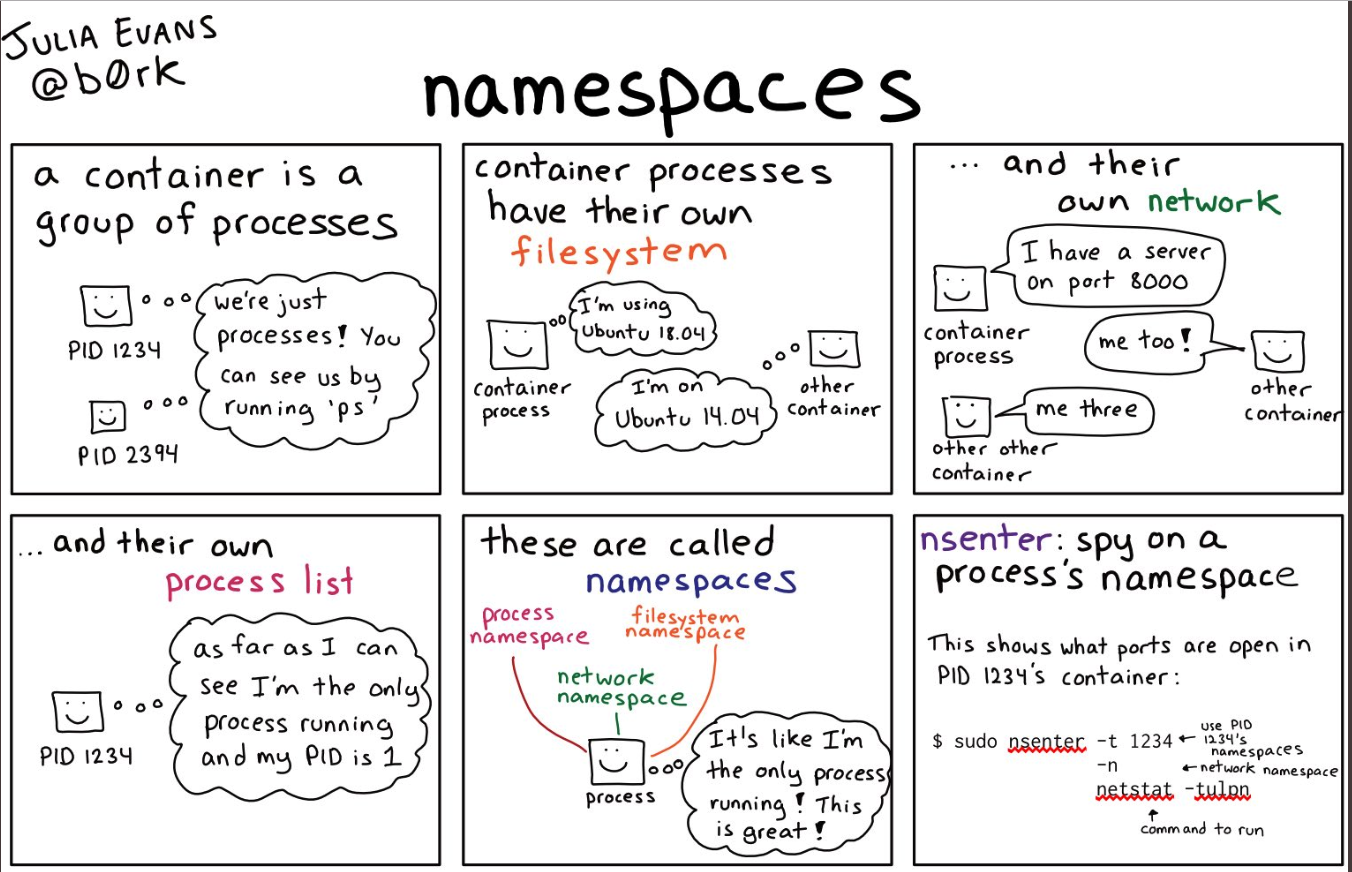 JULIA EVANS
@b0rk
namespaces
a container is a
group of processes
we're just
processes! You
can see us by
running 'ps'
PID 1234
PID 2394
container processes
have their own
filesystem
I'm using
Ubuntu 18.04
container
process
I'm on
Ubuntu 14.04
other
container
... and their
own network
I have a server
on port 8000
container
process
me too!
other
container
me three
other other
container
... and their own
process list
as far as I can
see I'm the only
process running
and my PID is 1
PID 1234
these are called
namespaces
process
namespace
filesystem
namespace
network
namespace
process
It's like I'm
the only process
running! This
is great!
nsenter: spy on a
process's namespace
This shows what ports are open in
PID 1234's container:
$ sudo nsenter -t 1234
use PID
1234's
namespaces
-n
network namespace
netstat -tulpn
command to run